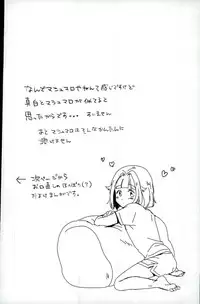 なんでマシュマロやねんて感じですけど
真白とマシュマロが似てると
思ったからです… すいません
あとマシュマロはそんなかんたんに
溶けません
← 次ページから
お口直しの
まんがです。